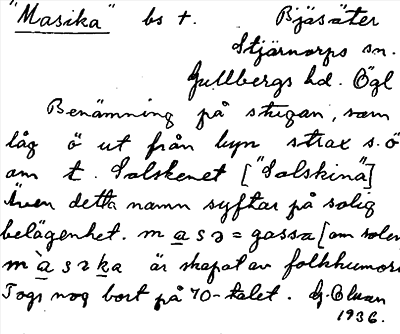 "Masika" bs t. Bjäsäter
Stjärnorps sn.
Gullbergs hd. Ögl
Benämning på stugan, som
låg ö ut från byn strax s.ö
om t. Solskenet ["Solskina"]
Även detta namn syftar på solig
belägenhet. m a s ɜ = gassa [om solen
m à s ɜ k a är skapat av folkhumor
Togs nog bort på 70-talet. G.
1936.